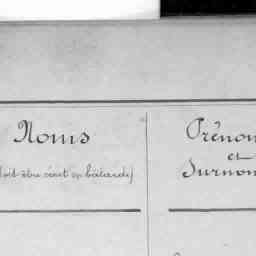 Noms
(doit être écrit en bâtarde)
Prénom
et
Surnom